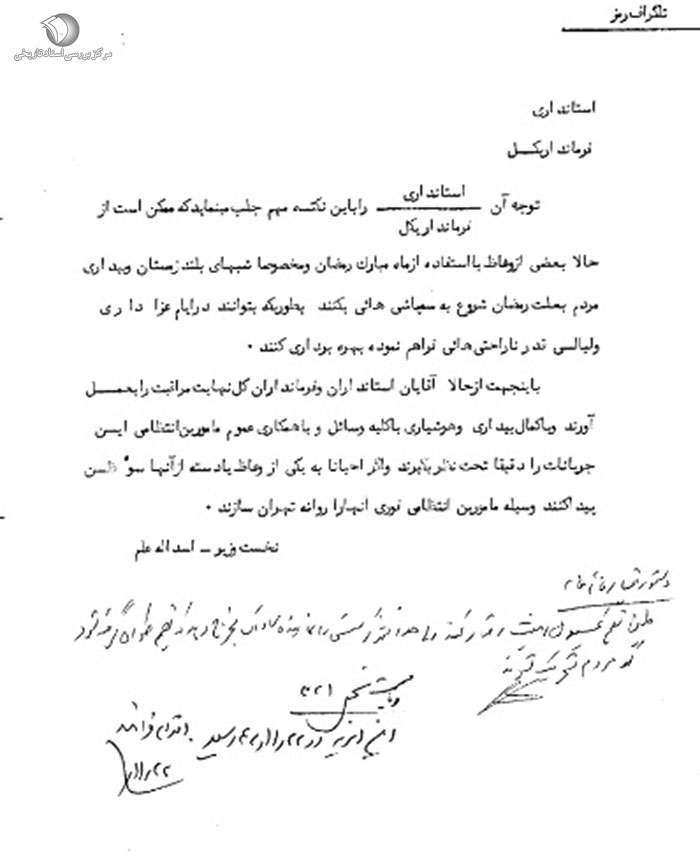 تلگراف رمز
مرکز بررسی اسناد تاریخی
استانداری
فرمانداریکل
توجه آن استانداری
فرمانداریکل
را باین نکته مهم جلب مینماید که ممکن است از
حالا بعضی از وعاظ با استفاده از ماه مبارك رمضان ومخصوصا شبهای بلند زمستان وبیداری
مردم بعلت رمضان شروع به سمپاشی هائی بکنند بطوریکه بتوانند در ایام عزا داری
ولیالسی قدر ناراحتی هائی فراهم نموده بهره برداری کنند ۰
باینجهت از حالا آقایان استانداران وفرمانداران کل نهایت مراقبت را بعمـــل
آورند وباکمال بیداری وهوشیاری باکلیه وسائل و با همکاری عموم مامورین انتظامی ایـــن
جریانات را دقیقا تحت نظر بگیرند واگر احیانا به یکی از وعاظ یا دسته از آنها سوء ظـــن
پیدا کنند وسیله مامورین انتظامی فوری انها را روانه تهران سازند ۰
نخست وزیر – اسداله علم
ریاست بخش ۳۲۱